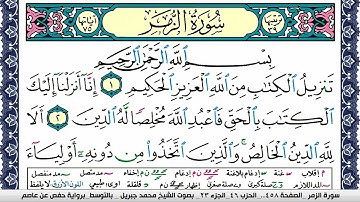 سُورَةُ الزُّمَرِ
بِسْمِ ٱللَّهِ ٱلرَّحْمَٰنِ ٱلرَّحِيمِ
تَنزِيلُ ٱلْكِتَٰبِ مِنَ ٱللَّهِ ٱلْعَزِيزِ ٱلْحَكِيمِ ١ إِنَّآ أَنزَلْنَآ إِلَيْكَ
ٱلْكِتَٰبَ بِٱلْحَقِّ فَٱعْبُدِ ٱللَّهَ مُخْلِصًا لَّهُ ٱلدِّينَ ٢ أَلَا
لِلَّهِ ٱلدِّينُ ٱلْخَالِصُ وَٱلَّذِينَ ٱتَّخَذُوا۟ مِن دُونِهِۦٓ أَوْلِيَآءَ
سورة الزمر - الصفحة ٤٥٨ - الحزب ٤٦ - الجزء ٢٣ - بصوت الشيخ محمد جبريل - بالتوسط برواية حفص عن عاصم